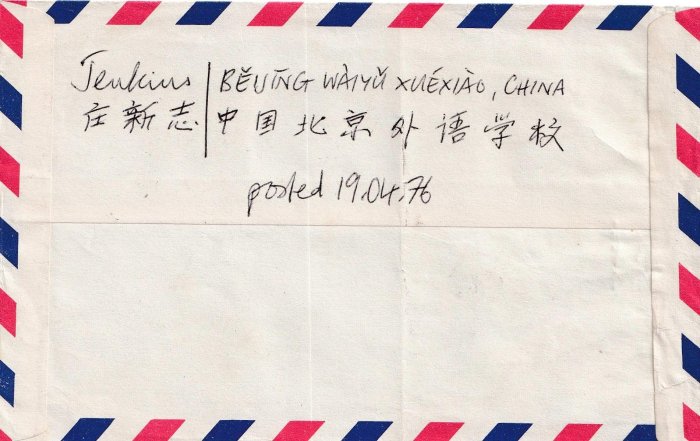 Jenkins | BĚIJĪNG WÀIYǓ XUÉXIÀO, CHINA
庄新志 | 中国北京外语学校
posted 19.04.76